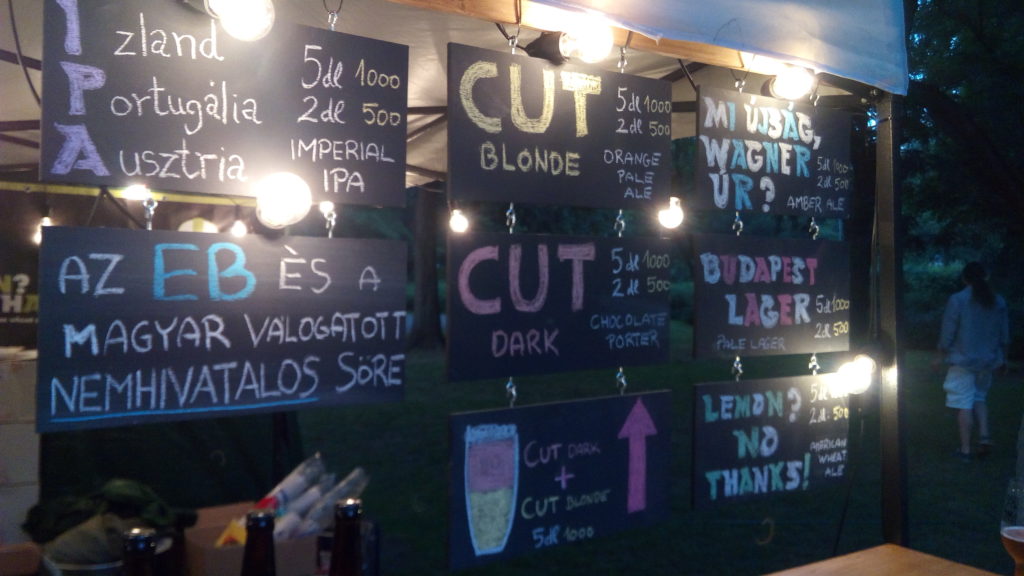 I zland
P ortugália
A usztria
5dl 1000
2dl 500
IMPERIAL
IPA
AZ EB ÈS A
MAGYAR VÁLOGATOTT
NEMHIVATALOS SÖRE
CUT
BLONDE
5dl 1000
2dl 500
ORANGE
PALE
ALE
CUT
DARK
5dl 1000
2dl 500
CHOCOLATE
PORTER
CUT DARK
+
CUT BLONDE
5dl 1000
MI ÚJSÁG,
WAGNER
ÚR?
5dl 1000
2dl 500
AMBER ALE
BUDAPEST
LAGER
5dl 1000
2dl 500
PALE LAGER
LEMON?
NO
THANKS!
2dl 500
AMERICAN
WHEAT
ALE